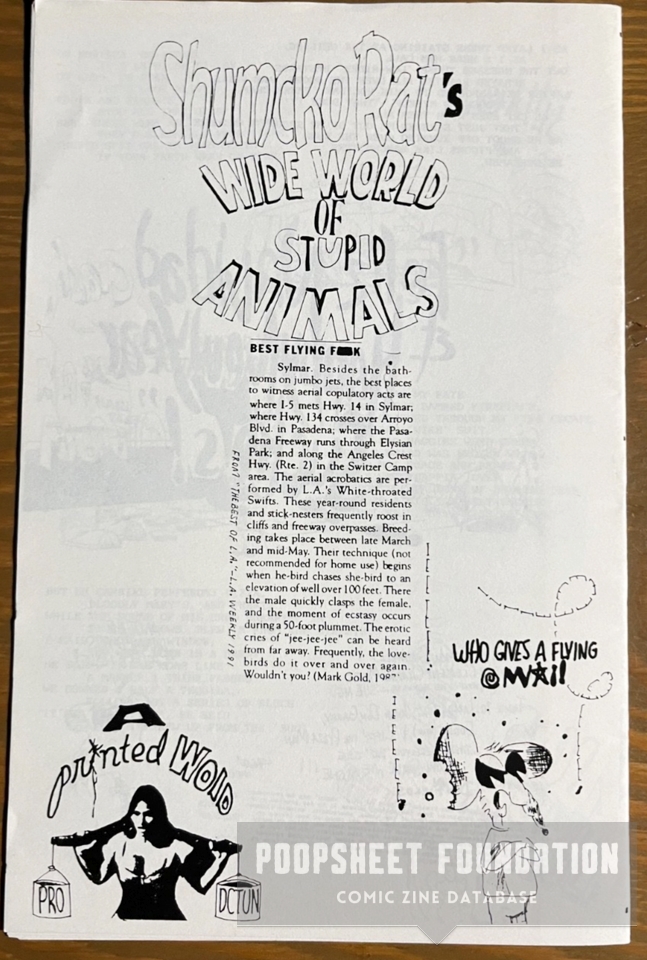 Shumcko Rat's
WIDE WORLD
OF
STUPID
ANIMALS
BEST FLYING F K
Sylmar. Besides the bath-
rooms on jumbo jets, the best places
to witness aerial copulatory acts are
where I-5 mets Hwy. 14 in Sylmar;
where Hwy. 134 crosses over Arroyo
Blvd. in Pasadena; where the Pasa-
dena Freeway runs through Elysian
Park; and along the Angeles Crest
Hwy. (Rte. 2) in the Switzer Camp
area. The aerial acrobatics are per-
formed by L.A.'s White-throated
Swifts. These year-round residents
and stick-nesters frequently roost in
cliffs and freeway overpasses. Breed-
ing takes place between late March
and mid-May. Their technique (not
recommended for home use) begins
when he-bird chases she-bird to an
elevation of well over 100 feet. There
the male quickly clasps the female,
and the moment of ecstasy occurs
during a 50-foot plummet. The erotic
cries of "jee-jee-jee" can be heard
from far away. Frequently, the love-
birds do it over and over again.
Wouldn't you? (Mark Gold,
FROM "THE BEST OF L.A."-L.A. WEEKLY 1991
WHO GIVES A FLYING
@
A
printed WOID
PRO DCTUN
POOPSHEET FOUNDATION
COMIC ZINE DATABASE